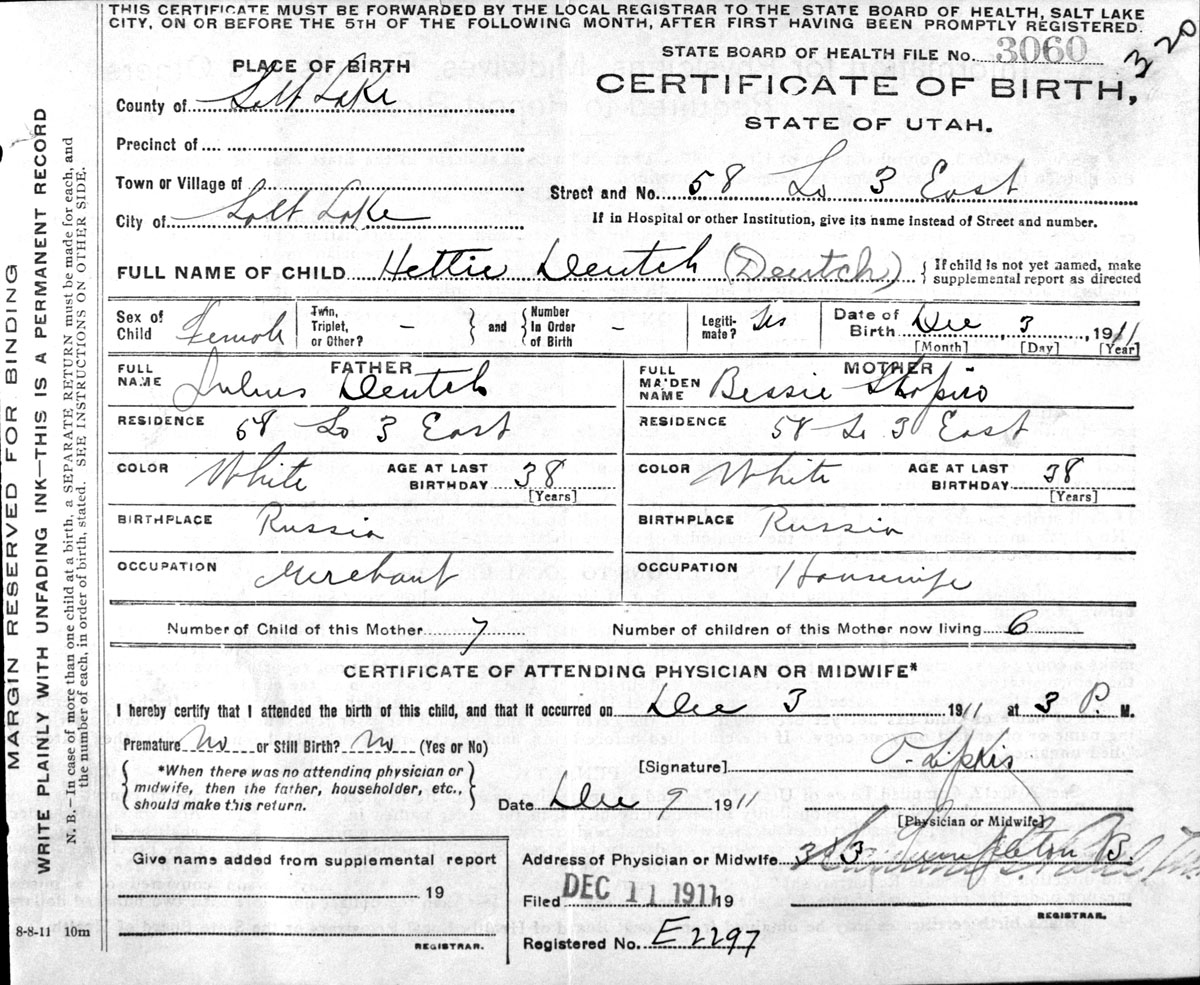 THIS CERTIFICATE MUST BE FORWARDED BY THE LOCAL REGISTRAR TO THE STATE BOARD OF HEALTH, SALT LAKE
CITY, ON OR BEFORE THE 5TH OF THE FOLLOWING MONTH, AFTER FIRST HAVING BEEN PROMPTLY REGISTERED.
STATE BOARD OF HEALTH FILE No. 3060
320
PLACE OF BIRTH
CERTIFICATE OF BIRTH,
STATE OF UTAH.
County of Salt Lake
Precinct of
Town or Village of
Street and No. 58 So 3 East
City of Salt Lake
If in Hospital or other Institution, give its name instead of Street and number.
FULL NAME OF CHILD Hettie Deutch (Deutch) {If child is not yet named, make supplemental report as directed
Sex of Child Female
Twin, Triplet, or Other? - } and { Number In Order of Birth -
Legitimate? Yes
Date of Birth Dec 3, 1911
[Month] [Day] [Year]
FATHER
FULL NAME Julius Deutch
MOTHER
FULL MAIDEN NAME Bessie Shapiro
RESIDENCE 58 So 3 East
RESIDENCE 58 So 3 East
COLOR White AGE AT LAST BIRTHDAY 38 [Years]
COLOR White AGE AT LAST BIRTHDAY 38 [Years]
BIRTHPLACE Russia
BIRTHPLACE Russia
OCCUPATION Merchant
OCCUPATION Housewife
Number of Child of this Mother 7
Number of children of this Mother now living 6
CERTIFICATE OF ATTENDING PHYSICIAN OR MIDWIFE*
I hereby certify that I attended the birth of this child, and that it occurred on Dec 3 1911 at 3 P. M.
Premature No or Still Birth? No (Yes or No)
*When there was no attending physician or
midwife, then the father, householder, etc.,
should make this return.
[Signature]
Date Dec 9 1911
[Physician or Midwife]
Give name added from supplemental report
19
REGISTRAR.
Address of Physician or Midwife 383 Templeton B.
Filed DEC 11 1911 19
REGISTRAR.
Registered No. E2297
8-8-11 10m
MARGIN RESERVED FOR BINDING
WRITE PLAINLY WITH UNFADING INK—THIS IS A PERMANENT RECORD
N. B.—In case of more than one child at a birth, a SEPARATE RETURN must be made for each, and
the number of each, in order of birth, stated. SEE INSTRUCTIONS ON OTHER SIDE.